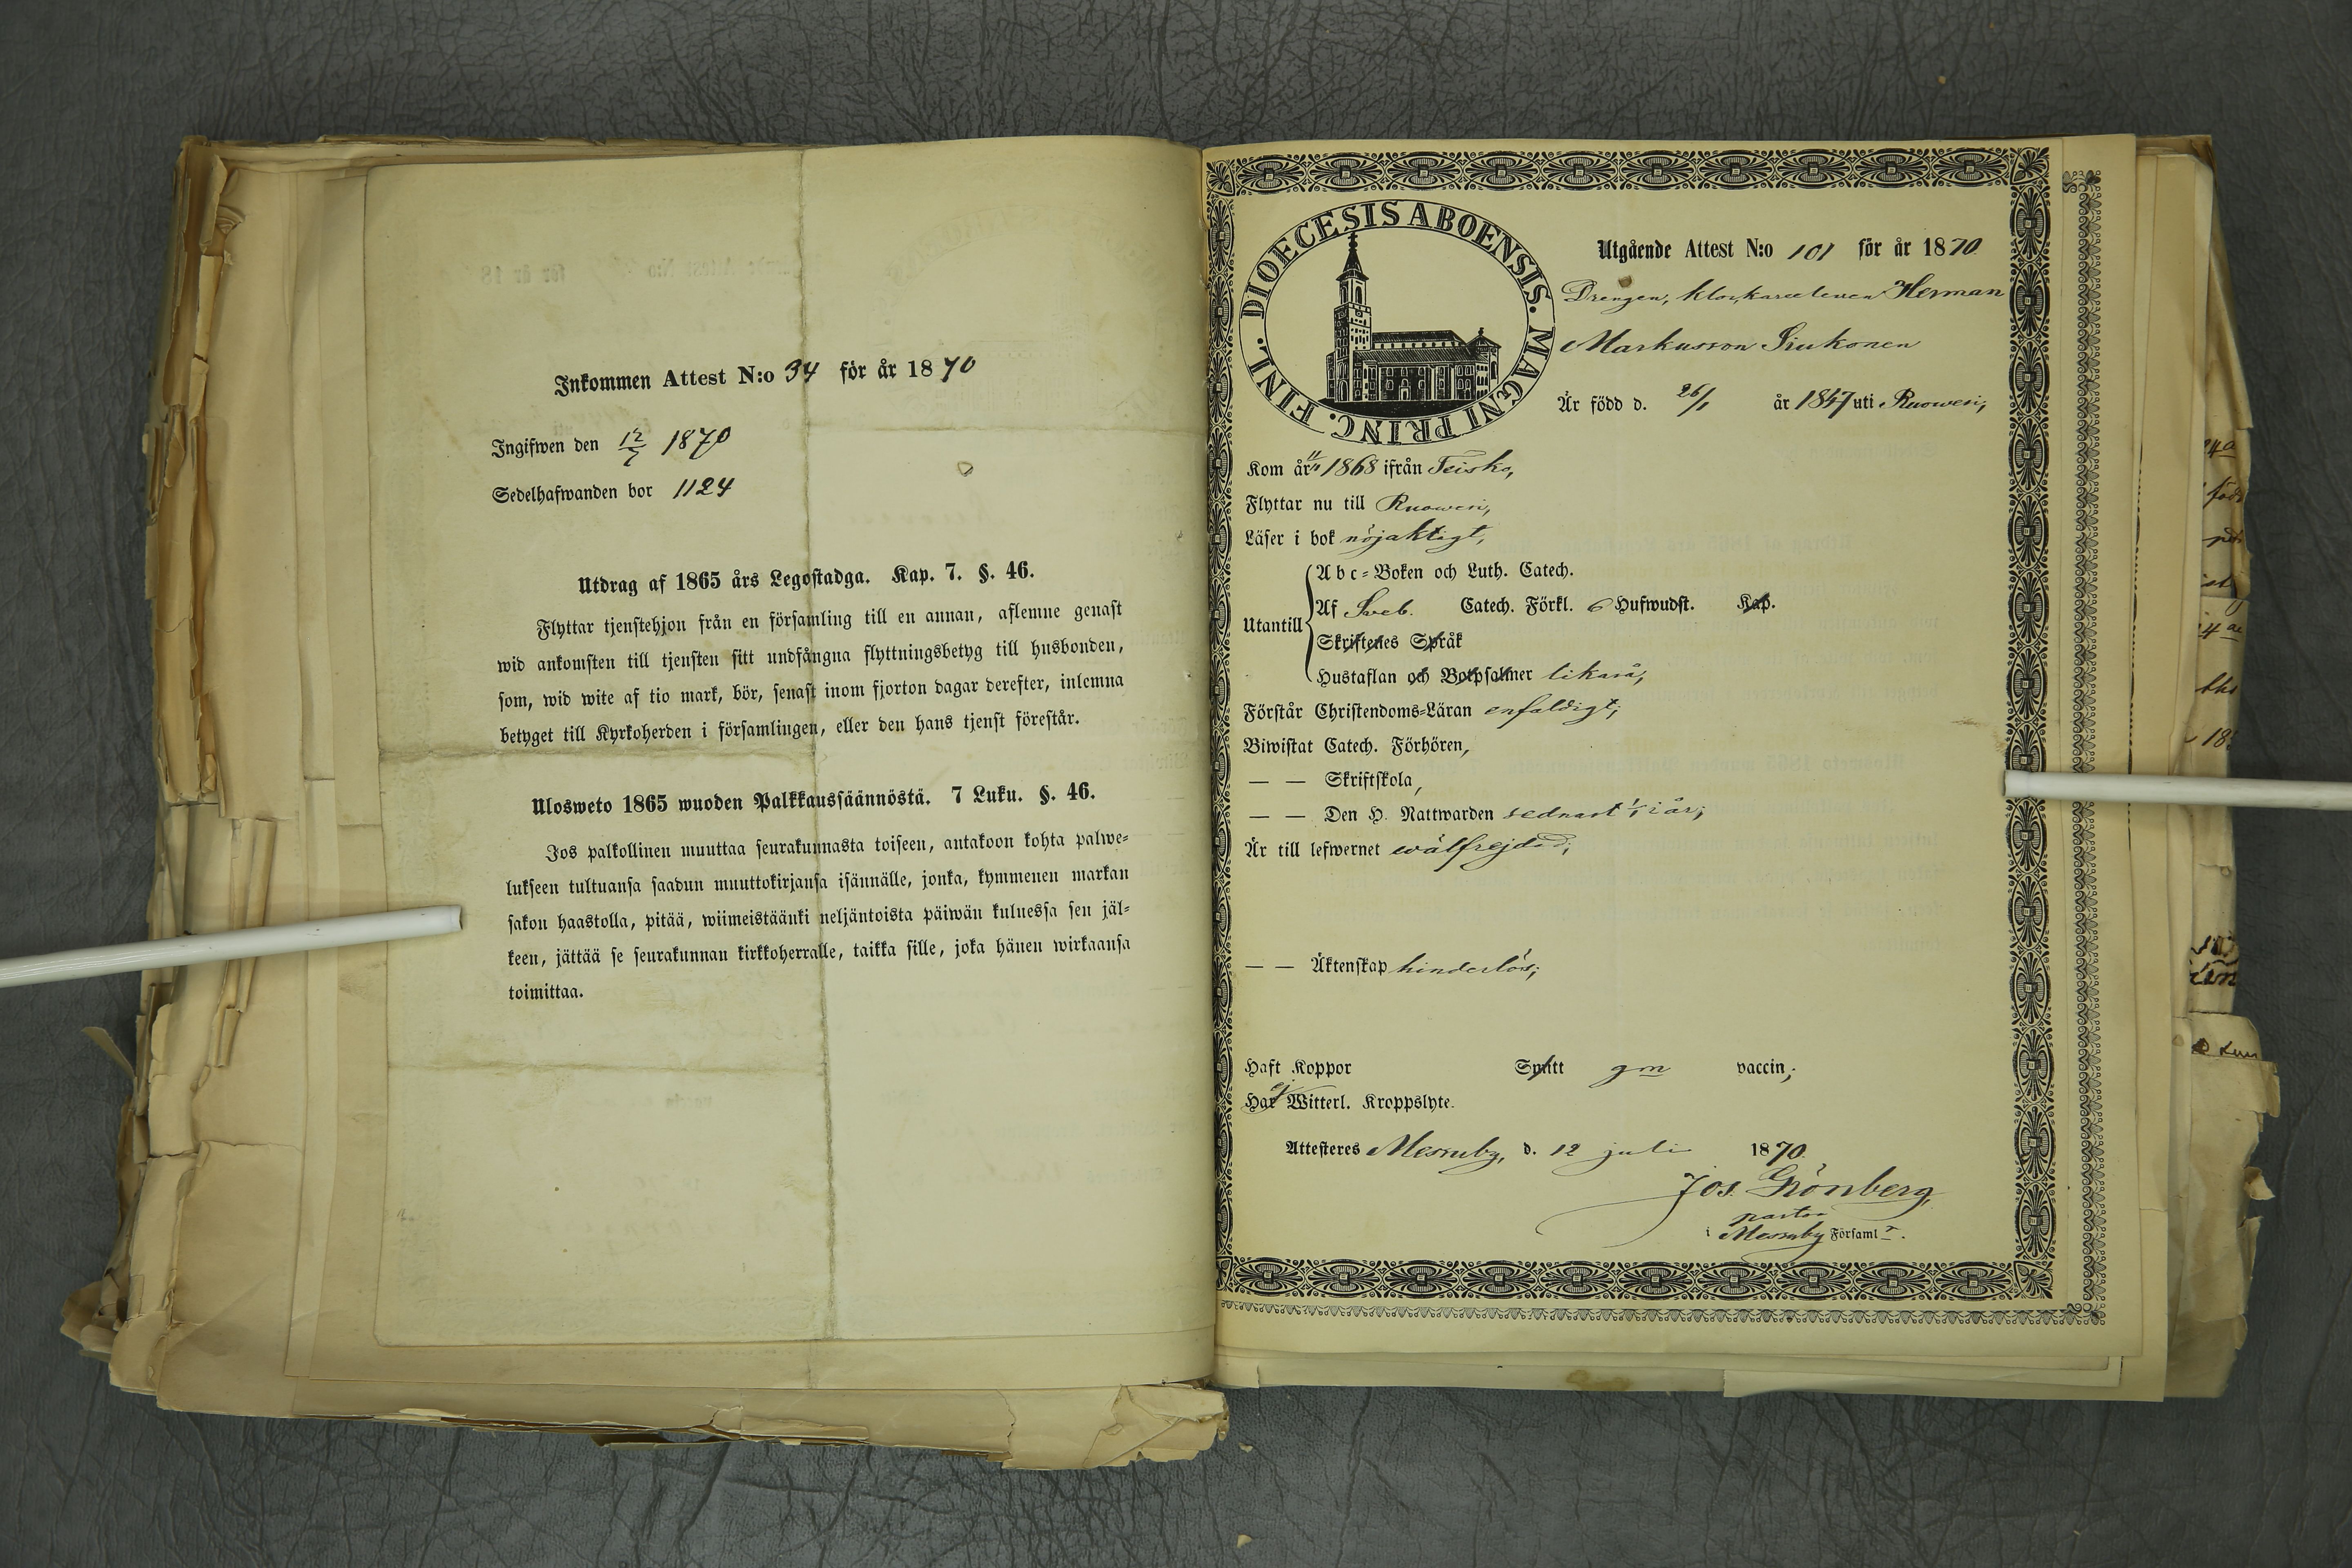 Inkommen Attest N:o 34 för år 1870
Ingifwen den 12/7 1870
Sedelhafwanden bor 1124
Utdrag af 1865 års Legostadga. Kap. 7. §. 46.
Flyttar tjenstehjon från en församling till en annan, aflemne genast
wid ankomsten till tjensten sitt undfångna flyttningsbetyg till husbonden,
som, wid wite af tio mark, bör, senast inom fjorton dagar derefter, inlemna
betyget till Kyrkoherden i församlingen, eller den hans tjenst förestår.
Ulosweto 1865 wuoden Palkkaussäännöstä. 7 Luku. §. 46.
Jos palkollinen muuttaa seurakunnasta toiseen, antakoon kohta palwe-
lukseen tultuansa saadun muuttokirjansa isännälle, jonka, kymmenen markan
sakon haastolla, pitää, wiimeistäänki neljäntoista päiwän kuluessa sen jäl-
keen, jättää se seurakunnan kirkkoherralle, taikka sille, joka hänen wirkaansa
toimittaa.
DIOECESIS ABOENSIS. MAGNI PRINC. FINL.
Utgående Attest N:o 101 för år 1870
Drengen, klockareeleven Herman
Markusson Siukonen
Är född d. 26/1 år 1847 uti Ruowesi,
Kom år 1868 ifrån Teisko,
Flyttar nu till Ruowesi,
Läser i bok nöjaktigt,
Utantill
Abc-Boken och Luth. Catech.
Af Sveb. Catech. Förkl. 6 Hufwudst. Kap.
Skriftenes Språk
Hustaflan och Botpsalmer likaså;
Förstår Christendoms-Läran enfaldigt;
Biwistat Catech. Förhören,
— — Skriftskola,
— — Den H. Nattwarden sednast 1/5 i år;
Är till lefwernet wälfrejdad;
— — Äktenskap hinderlös;
Haft Koppor Spritt gm vaccin;
Har ej Witterl. Kroppslyte.
Attesteres Messuby, d. 12 juli 1870
Jos. Grönberg,
pastor
i Messuby Församl.